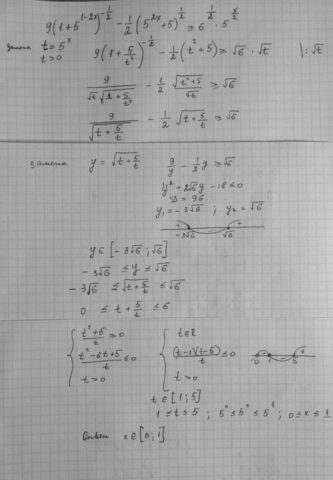 9(1+5^{1-2x})^{-1/2} - 1/2(5^{2x}+5)^{1/2} ≥ 6^{1/2} · 5^{x/2}
замена t = 5^x 9(1+5/t²)^{-1/2} - 1/2(t²+5) ≥ √6 · √t |:√t
t > 0
9/(√t √(1+5/t²)) - 1/2 √(t²+5)/√t ≥ √6
9/√(t+5/t) - 1/2 √(t+5/t) ≥ √6
замена y = √(t+5/t) 9/y - 1/2 y ≥ √6
y² + 2√6y - 18 ≤ 0
D = 96
y₁ = -3√6 ; y₂ = √6
+ - +
-3√6 √6
y ∈ [-3√6 ; √6]
-3√6 ≤ y ≤ √6
-3√6 ≤ √(t+5/t) ≤ √6
0 ≤ t + 5/t ≤ 6
{ (t²+5)/t ≥ 0 { t ∈ R
{ (t²-6t+5)/t ≤ 0 { (t-1)(t-5)/t ≤ 0 0 1 5
{ t > 0 { t > 0
t ∈ [1; 5]
1 ≤ t ≤ 5 ; 5⁰ ≤ 5^x ≤ 5¹ ; 0 ≤ x ≤ 1
Ответ x ∈ [0; 1]